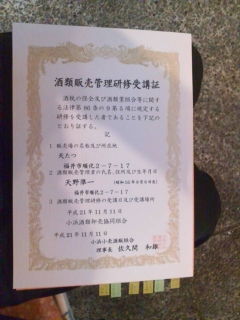 酒類販売管理研修受講証
酒税の保全及び酒類業組合等に関す
る法律第86条の9第5項に規定する
研修を受講した者であることを下記の
とおり証する。
記
1 販売場の名称及び所在地
天たつ
福井市順化2-7-17
2 酒類販売管理者の氏名、住所及び生年月日
天野準一
福井市順化2-7-17
3 酒類販売管理研修の受講日及び受講場所
平成21年11月11日
小浜酒類卸売協同組合
平成21年11月11日
小浜小売酒販組合
理事長 佐久間 和雄